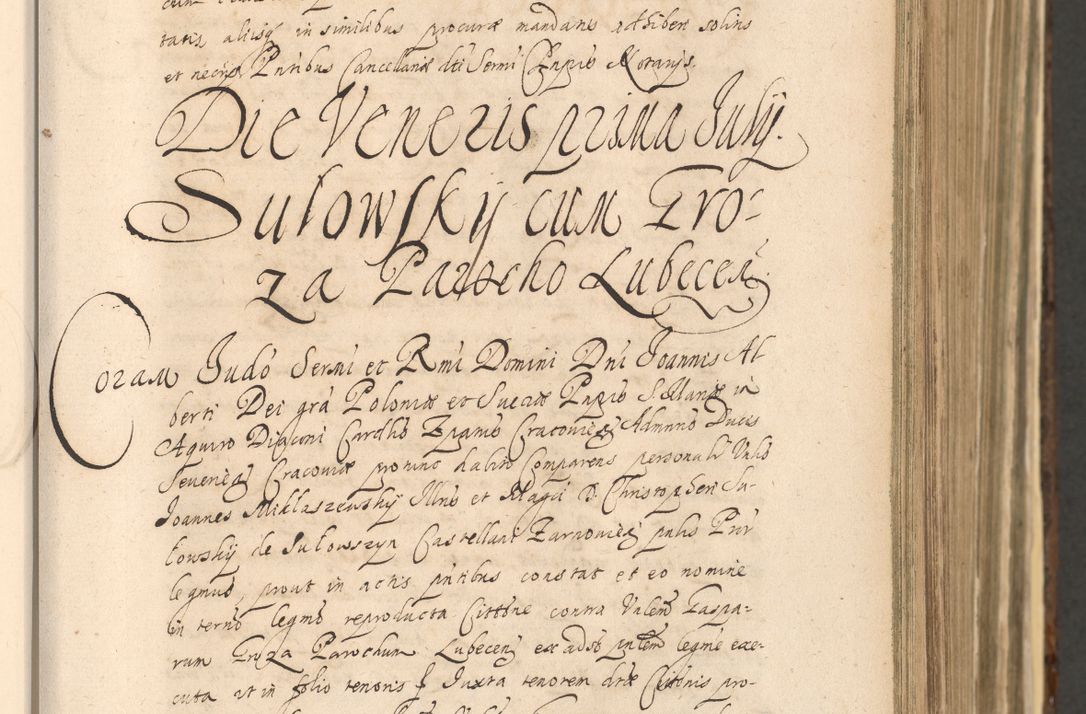 tatis aliisq in similibus procurae mandans adhiberi solius
et necijs Pntibus Cancellariae dti Sermi Epi Notarijs.
Die Veneris prima Julij.
Sulowskij cum Gro-
za Parocho Lubecen
Coram Judo Sermi et Rmi Domini Dni Joannis Al
berti Dei gra Poloniae et Sueciae Pnpis S. Mariae in
Aquiro Diaconi Cardlis Epanis Cracovien Admnno Ducis
Severien Cracoviae pronunc habito Comparens personalr Valis
Joannes Miklaszewskij Illris et Magci D. Christopheri Su-
lowskij de Sulowszyn Castellani Zarnovien pnlis Prur
legmus, prout in actis pntibus constat et eo nomine
in terno legmo reproducta Cittone contra Valem Gaspa-
rum Groza Parochum Lubecen ex adso pntem legme exe-
cuta ut in folio tenoris f Juxta tenorem dtae Cittonis pro-